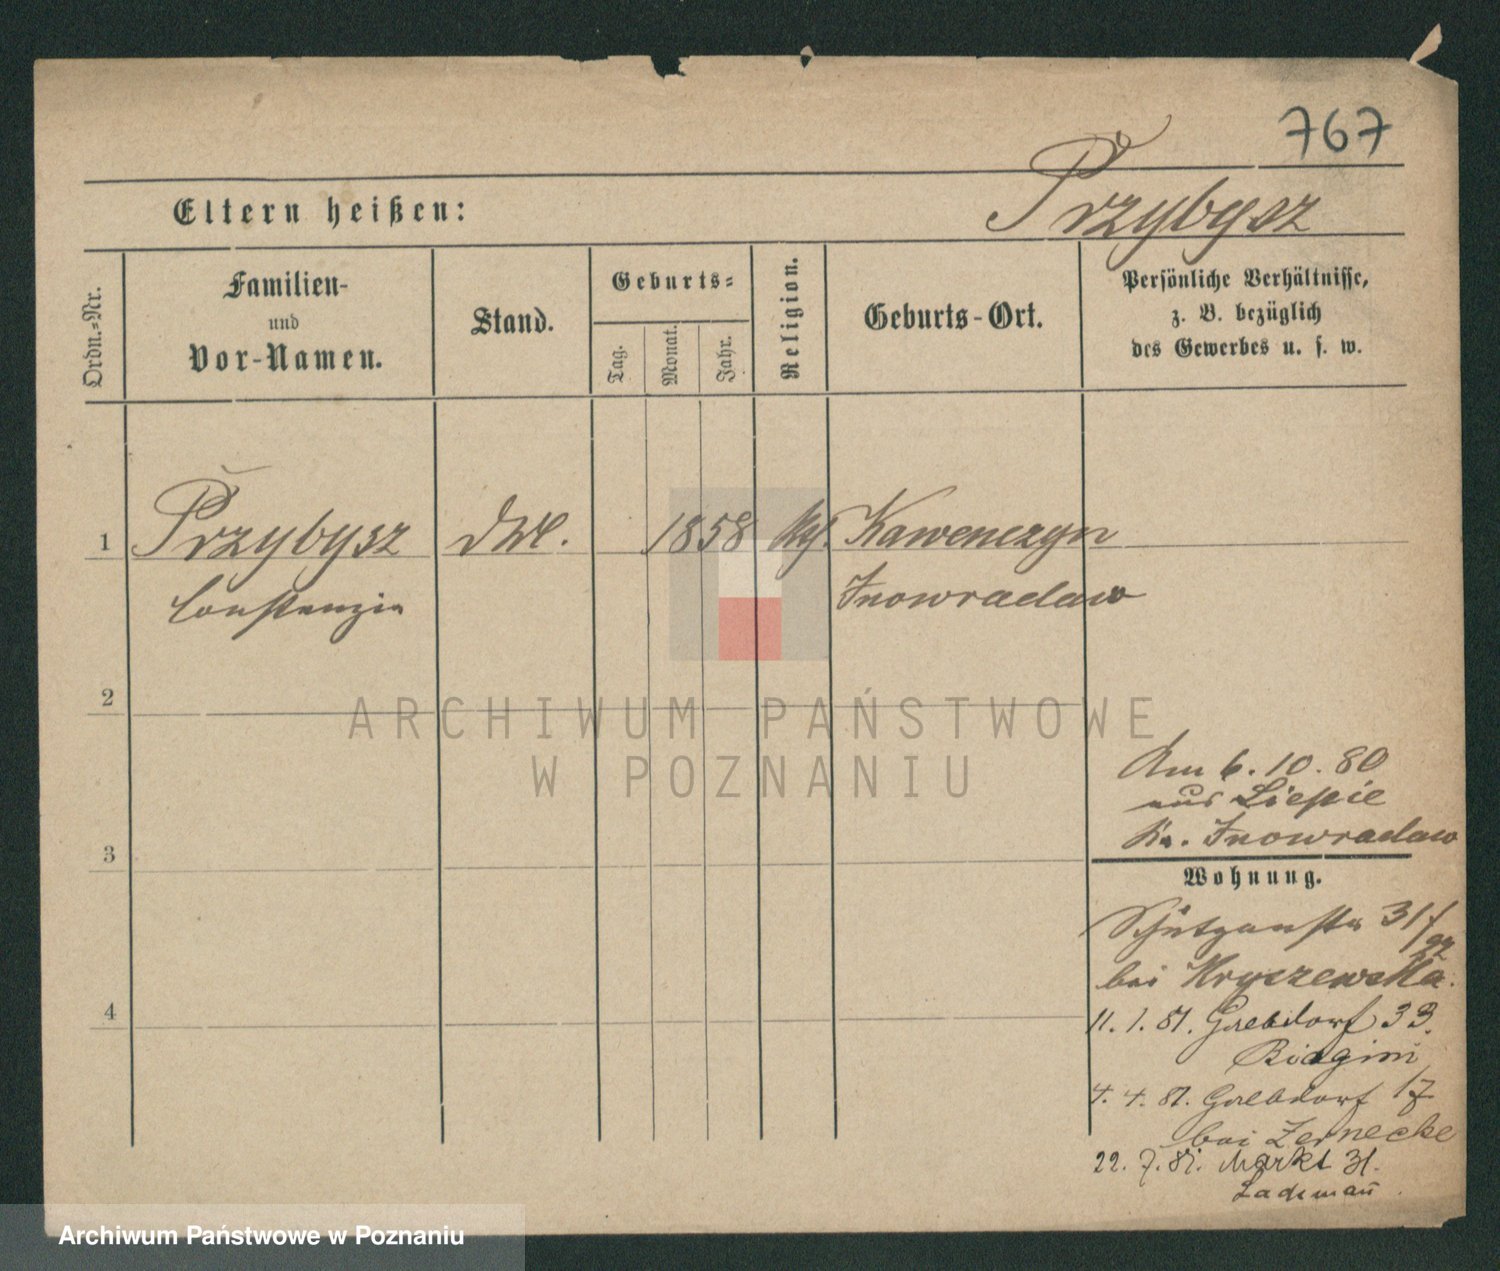 767
Przybysz
Eltern heißen:
Ordn.-Nr.
Familien-
und
Vor-Namen.
Stand.
Geburts-
Tag.
Monat.
Jahr.
Religion.
Geburts-Ort.
Persönliche Verhältnisse,
z. B. bezüglich
des Gewerbes u. s. w.
1
Przybysz
1858
Kawenczyn
Constanzia
Inowraclaw
2
3
4
Am 6. 10. 80
aus Liepie
Kr. Inowraclaw
Wohnung.
Schützenstr 31/
bei Kryszewska.
11. 1. 81. Graebdorf 33.
Biagini
4. 4. 81. Graebdorf 17
bei Zernecke
22. 7. 81. Markt 31.
ARCHIWUM PAŃSTWOWE
W POZNANIU
Archiwum Państwowe w Poznaniu